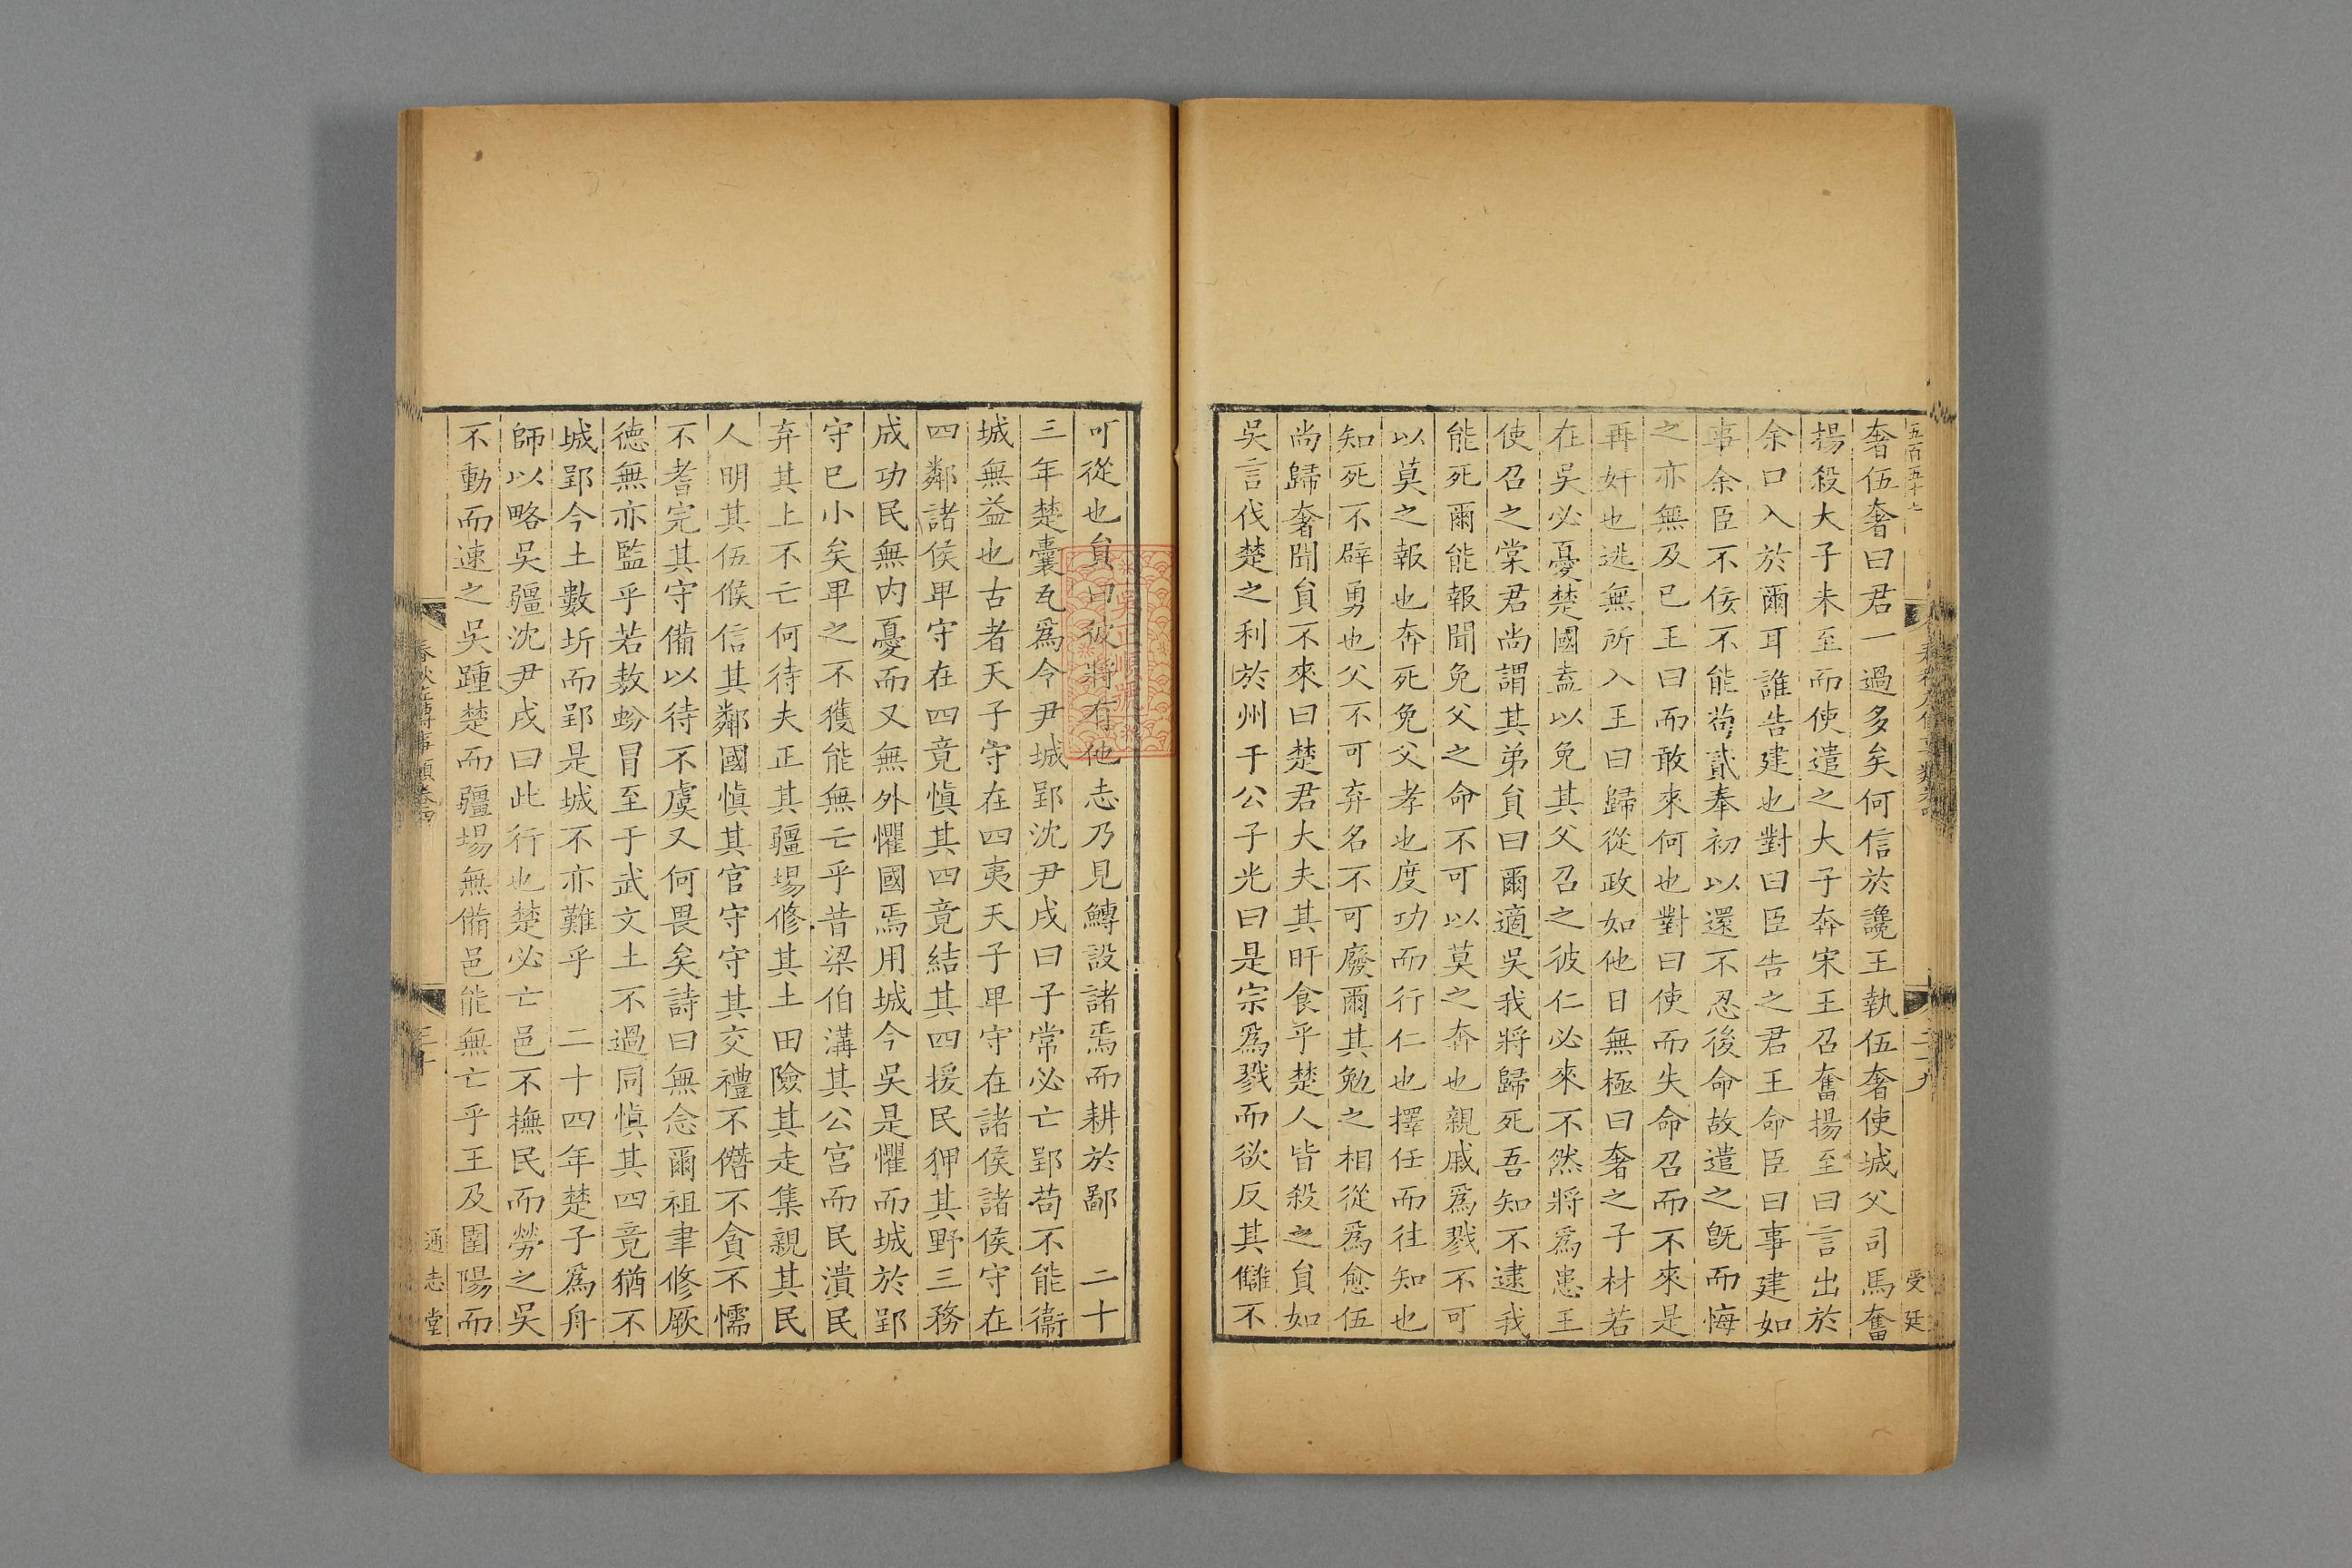 五百五十七
奢伍奢曰君一過多矣何信於讒王執伍奢使城父司馬奮
揚殺大子未至而使遣之大子奔宋王召奮揚至曰言出於
余口入於爾耳誰告建也對曰臣告之君王命臣曰事建如
事余臣不佞不能苟貳奉初以還不忍後命故遣之旣而悔
之亦無及已王曰而敢來何也對曰使而失命召而不來是
再奸也逃無所入王曰歸從政如他日無極曰奢之子材若
在吳必憂楚國盍以免其父召之彼仁必來不然將爲患王
使召之棠君尚謂其弟員曰爾適吳我將歸死吾知不逮我
能死爾能報聞免父之命不可以莫之奔也親戚爲戮不可
以莫之報也奔死免父孝也度功而行仁也擇任而往知也
知死不辟勇也父不可弃名不可廢爾其勉之相從爲愈伍
尚歸奢聞員不來曰楚君大夫其旰食乎楚人皆殺之員如
吳言伐楚之利於州于公子光曰是宗爲戮而欲反其讎不
可從也員曰彼將有他志乃見鱄設諸焉而耕於鄙　二十
三年楚囊瓦爲令尹城郢沈尹戌曰子常必亡郢苟不能衞
城無益也古者天子守在四夷天子卑守在諸侯諸侯守在
四鄰諸侯卑守在四竟愼其四竟結其四援民狎其野三務
成功民無內憂而又無外懼國焉用城今吳是懼而城於郢
守已小矣卑之不獲能無亡乎昔梁伯溝其公宮而民潰民
弃其上不亡何待夫正其疆埸修其土田險其走集親其民
人明其伍候信其鄰國愼其官守守其交禮不僭不貪不懦
不耆完其守備以待不虞又何畏矣詩曰無念爾祖聿修厥
德無亦監乎若敖蚡冒至于武文土不過同愼其四竟猶不
城郢今土數圻而郢是城不亦難乎　二十四年楚子爲舟
師以略吳疆沈尹戌曰此行也楚必亡邑不撫民而勞之吳
不動而速之吳踵楚而疆埸無備邑能無亡乎王及圉陽而
春秋左傳事類卷四
三十
通志堂